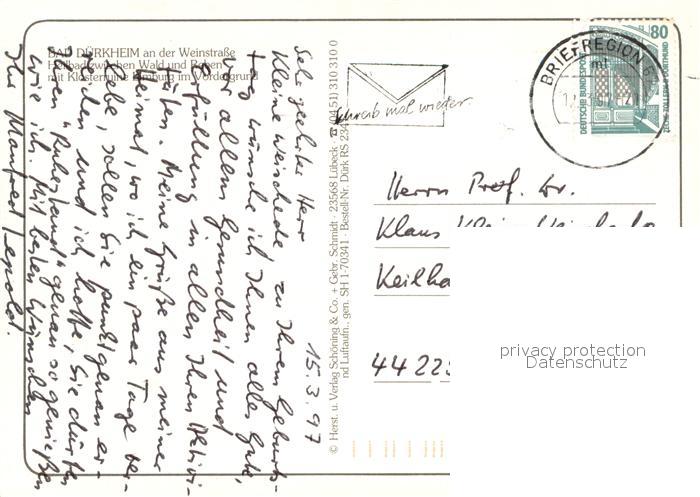 BAD DÜRKHEIM an der Weinstraße
Heilbad zwischen Wald und Reben
mit Klosterruine Limburg im Vordergrund
15.3.97
Sehr geehrter Herr
Kleine Weischede, zu Ihrem Geburts-
tag wünsche ich Ihnen alles Gute,
vor allem Gesundheit und
Erfüllung in allen Ihren Aktivi-
täten. Meine Grüße aus meiner
Heimat, wo ich ein paar Tage ver-
lebe, sollen Sie punktgenau er-
reichen und ich hoffe, Sie dürfen
"Ruhestand" genau so genießen
wie ich. Mit besten Wünschen
Ihr Manfred
© Herst. u. Verlag Schöning & Co. + Gebr. Schmidt · 23568 Lübeck · ☎ (04 51) 310 310 0
nd Luftaufn., gen. SH 1-70341 · Bestell-Nr. Dürk RS 234
Schreib mal wieder
BRIEFREGION
80
DEUTSCHE BUNDESPOST
ZECHE ZOLLERN II DORTMUND
Herrn Prof. Dr.
Klaus
44 225
privacy protection
Datenschutz